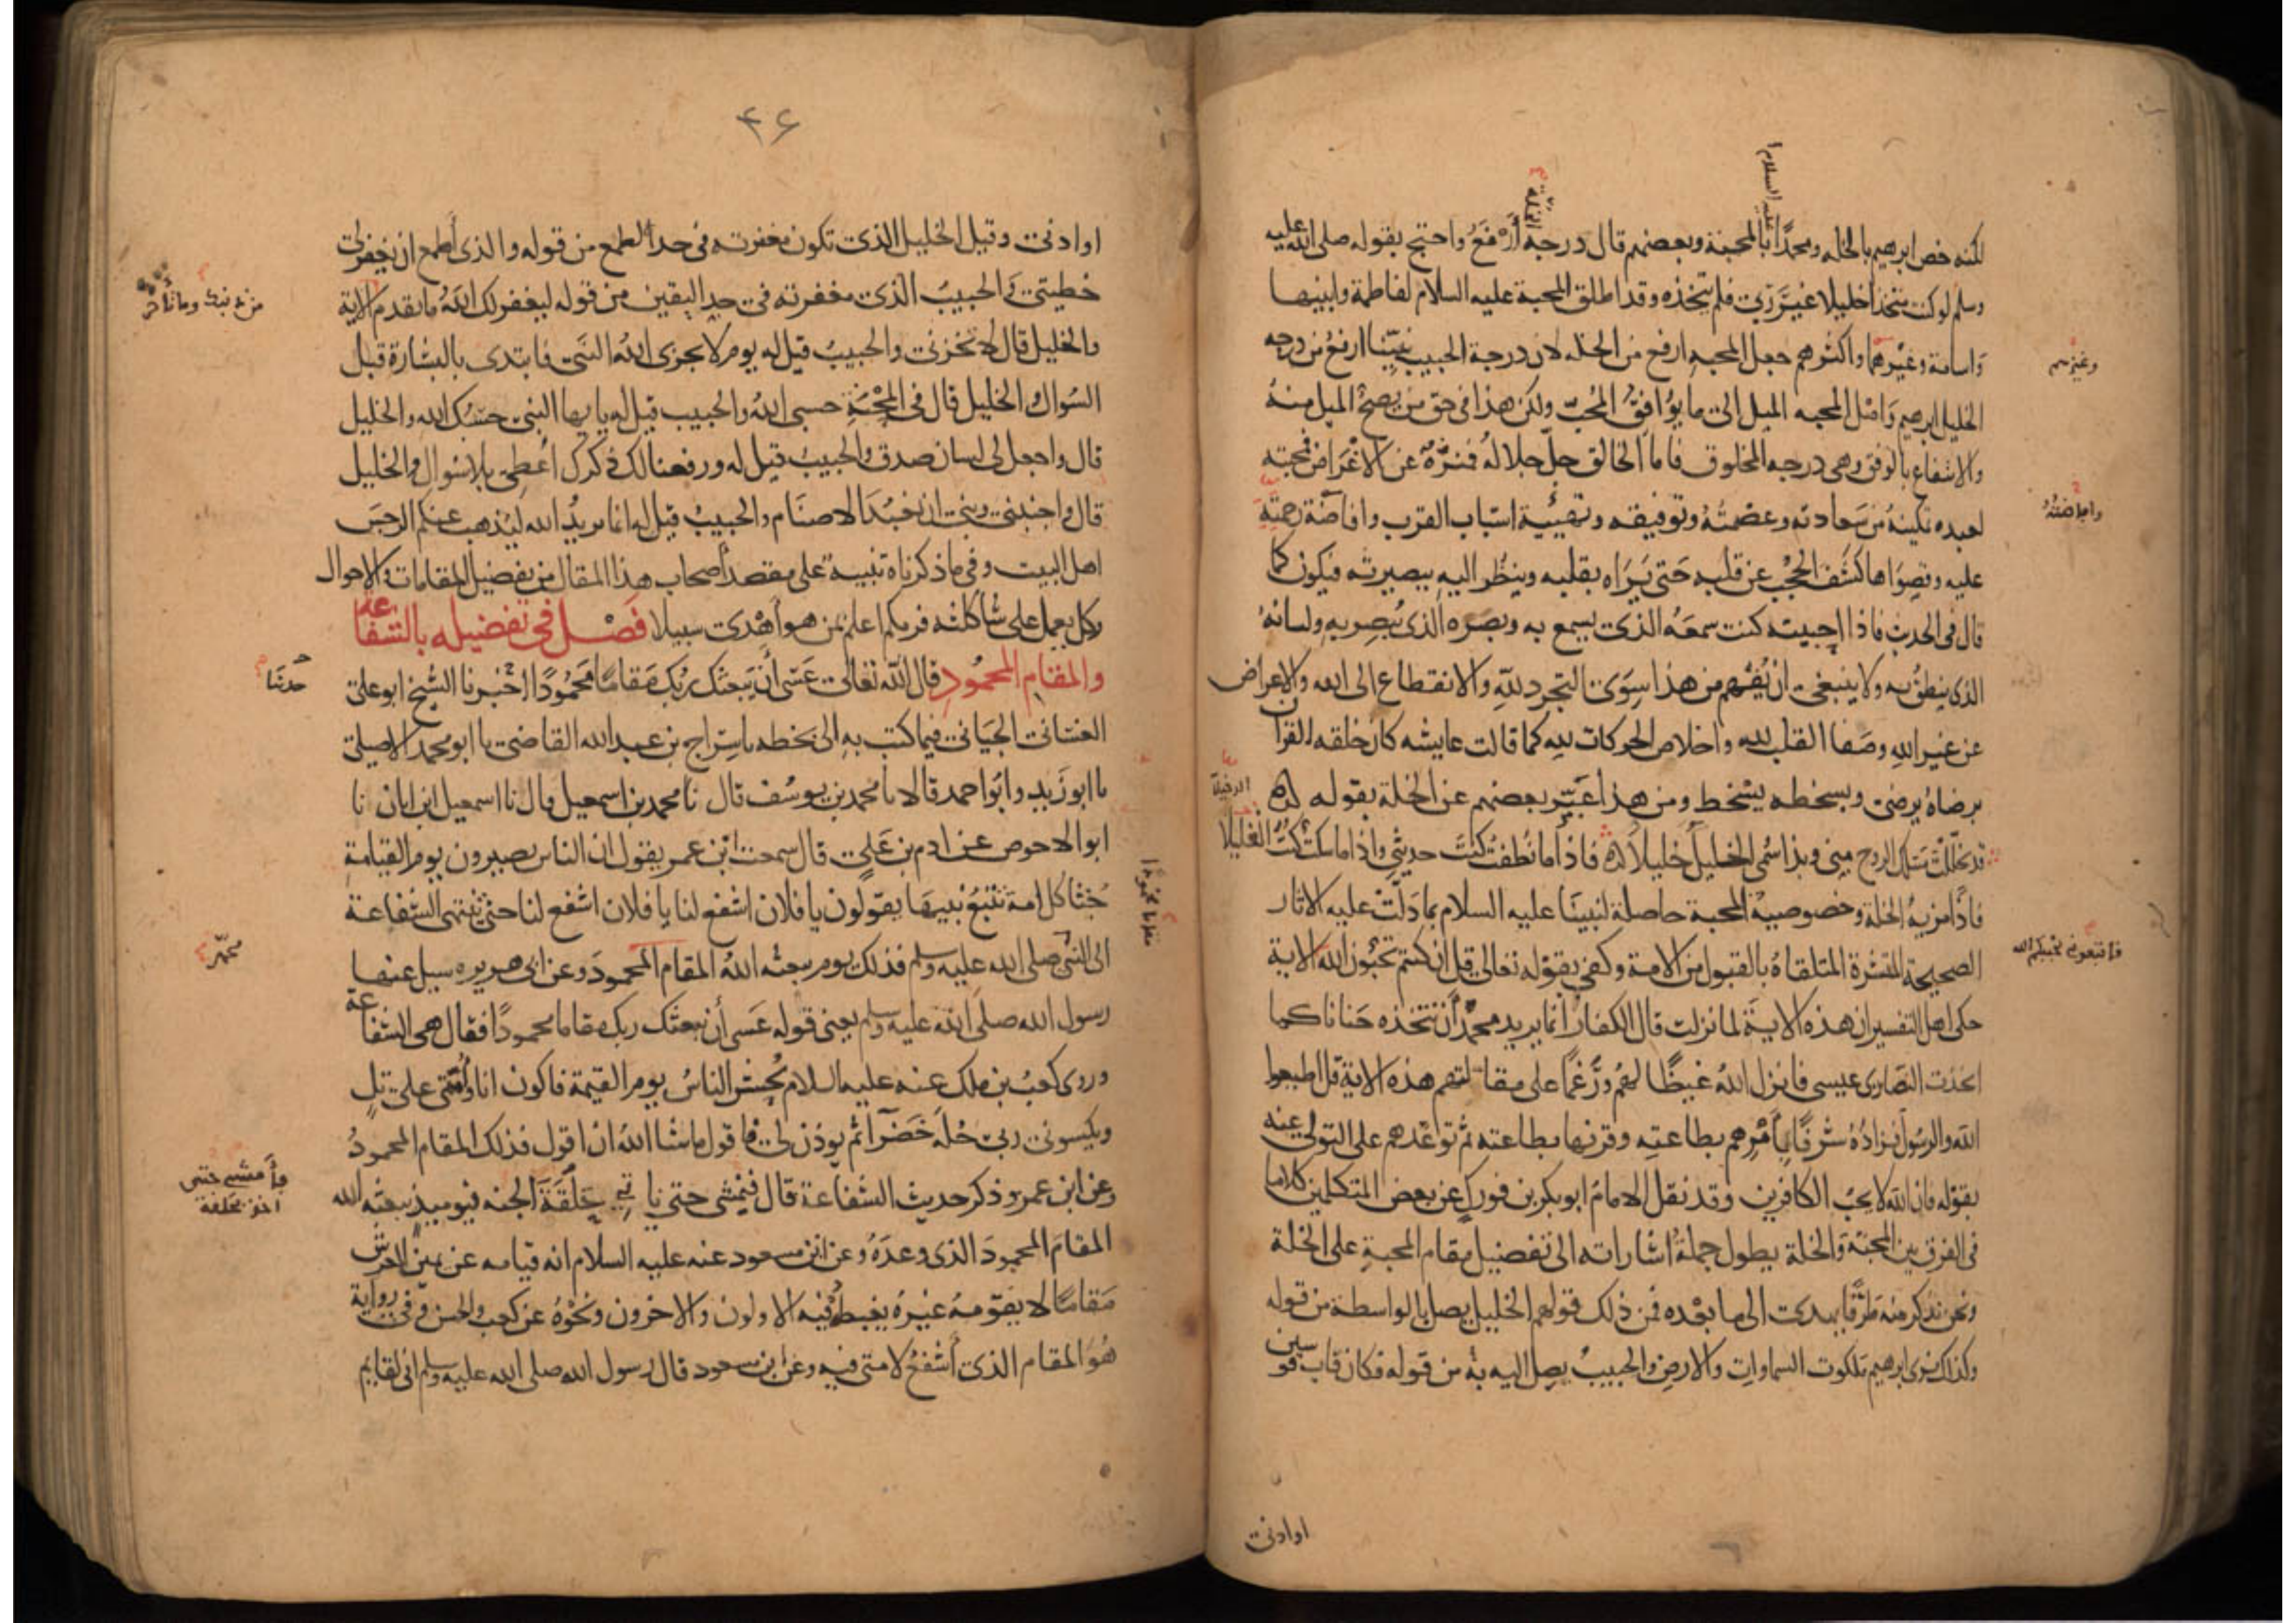 لكنه خص ابرهيم بالخله ومحمدًا بالمحبة وبعضهم قال درجة أَرْفَعُ واحتج بقوله صلى الله عليه
عليه السلام
الخلة
وسلم لو كنت متخذا خليلا غيرَ رَبّي فلم يتخذه وقد اطلق المحبة عليه السلام لفاطمة وابنيها
واسامة وغيْرهما واكثرهم جعل المحبه ارفع من الخله لان درجة الحبيب نبيّنا ارفع من درجه
وغيرهم
الخليل ابرهيم وَاصْل المحبه الميل الى ما يُوَافِقُ المُحبّ ولكن هذا فى حق من يصحّ الميل منهُ
والانتفاع بالوفق وهى درجه المخلوق فاما الخالق جلّ جلاله فمنزّهٌ عن الاغْرَاض فمحبته
لعبده تمكينهُ من سَعادته وعصْمتُهُ وتوفيقه وتهيئة اسْبَاب القرب وافاضَة رحمته
عليه وقصوَاها كشْف الحجُب عن قلبه حَتى يَرَاه بقلبه وينظُر اليه ببصيرته فيكون كما
قال فى الحديث فاذا احببته كنت سمعَهُ الذى يسمع به وبصَره الذى يُبصِر به ولسانهُ
الذى ينطق به ولا ينبغى ان يُفْهم من هذا سِوَى التجرد لله والانقطاع الى الله والاعراض
عن غير الله وصَفا القلب لله واخلاص الحركات لله كما قالت عايشه كان خلقه القران
برضاهُ يرضى وبسخطه يسْخط ومن هذا عَبّر بعضهم عن الخلة بقوله
قد تخلّلْتَ مَسْلك الروح منى وبذا سُمى الخليل خليلاً فاذا ما نطقتُ كنتَ حديثى واذا ما سكتُّ كُنْتَ الغليلا
فاذًا مزية الخلة وخصوصية المحبة حاصلة لنبينا عليه السلام بما دَلّتْ عليه الاثار
الصحيحة المنتشرة المتلقاة بالقبول من الامة وكفى بقوله تعالى قل ان كنتم تحبّون الله الاية
فاتبعونى يحببكم الله
حكى اهل التفسير ان هذه الاية لما نزلت قال الكفار انما يريد محمدٌ أَنْ نتخذه حَنانا كما
اتخذت النصارى عيسى فانزل الله غيظًا لهُم ورَغمًا على مقالتهم هذه الاية قل اطيعوا
الله والرسول فزادهُ شرفًا بأَمْرهم بطاعته وقرنها بطاعته ثم توعّدهم على التولى عنه
بقوله فان الله لا يحبّ الكافرين وقد نقل الامام ابو بكر بن فورك عن بعض المتكلمين كلاما
فى الفرق بين المحبّة والخلة يطول جملةُ اشاراته الى تفضيل مقام المحبةِ على الخلة
ونحن نذكر منه طَرَفًا يهدى الى ما بعْده فمن ذلك قولهم الخليل يصل بالواسطة من قوله
وكذلك نرى ابرهيم ملكوت السماوات والارض والحبيبُ يصِل اليه به من قوله فكان قاب قوسين
اوادنى
۴۶
او ادنى وقيل الخليل الذى تكون مغفرته فى حد الطمع من قوله والذى أطمع ان يغفر لى
خطيتى والحبيبُ الذى مغفرته فى حد اليقين من قوله ليغفر لك الله ما تقدم الاية
من ذنبك وما تأخر
والخليل قال لا تخزنى والحبيبُ قيل له يوم لا يخزى الله النّبى فابتدى بالبشارة قبل
السّوال والخليل قال فى المِحْنَةِ حسبى الله والحبيب قيل له يا يها النبى حسْبُك الله والخليل
قال واجعل لى لسان صدق والحبيبُ قيل له ورفعنا لك ذكرك اُعطِى بلا سُوال والخليل
قال واجنبنى وبنى ان نعْبُدَ الاصنام والحبيبُ قيل له انما يريدُ الله ليُذهب عنكم الرجسَ
اهل البيت وفى ما ذكرناه تنبيه على مقصد أصحاب هذا المقال من تفضيل المقامات والاحوال
وكل يعمل على شاكلته فربكم اعلم بمن هو أهْدى سبيلا فصْل فى تفضيله بالشفاعة
والمقام المحمودِ قال الله تعالى عَسى أن يَبعثك ربّك مَقامًا مَحمُودًا اخْبرنا الشيخ ابو على
حدثنا
الغسّانى الجَيانى فيما كتب به الى بخطه نا سِرَاج بن عبد الله القاضى نا ابو محمد الاصيلى
نا ابو زَيد وابُو احمد قالا نا محمد بن يوسُف قال نا محمد بن اسمعيل قال نا اسمعيل ابن ابان نا
ابو الاحوص عن ادم بن عَلى قال سمعت ابْن عمر يقول ان الناس يصيرون يوم القيامة
جُثًا كل امة تتبعُ نبيهَا يقولون يا فلان اشفع لنا يا فلان اشفع لنا حتى تنتهى الشفاعة
الى النبى صلى الله عليه وسلم فذلك يوم يبعثه الله المقام المحمودَ وعن ابى هريره سيل عنها
رسول الله صلى الله عليه وسلم يعنى قوله عَسى أن يبعثك ربك مقاما محمودًا فقال هى الشفاعة
وروى كعبُ بن ملك عنه عليه السلام يُحْشر الناسُ يوم القيمة فاكون انا وأمّتى على تلٍ
ويكسونى ربى حُلة خَضرَآ ثم يوذن لى فاقول ما شا الله ان اقول فذلك المقام المحمودُ
وعن ابن عمر وذكر حديث الشفاعة قال فيَمْشى حتى ياخذ بحلقَة الجنه فيوميذ يبعثه الله
المقامَ المحمودَ الذى وعدَهُ وعن ابْن مسعود عنه عليه السلام انه قيامه عن يمين العرش
مَقامًا لا يقومهُ غيرُه يغبطه فيه الاولون والاخرون ونحْوهُ عن كعب والحسن وفى رواية
هُوَ المقام الذى أَشْفعُ لامتى فيه وعن ابن مسعود قال رسول الله صلى الله عليه وسلم انى لقايم